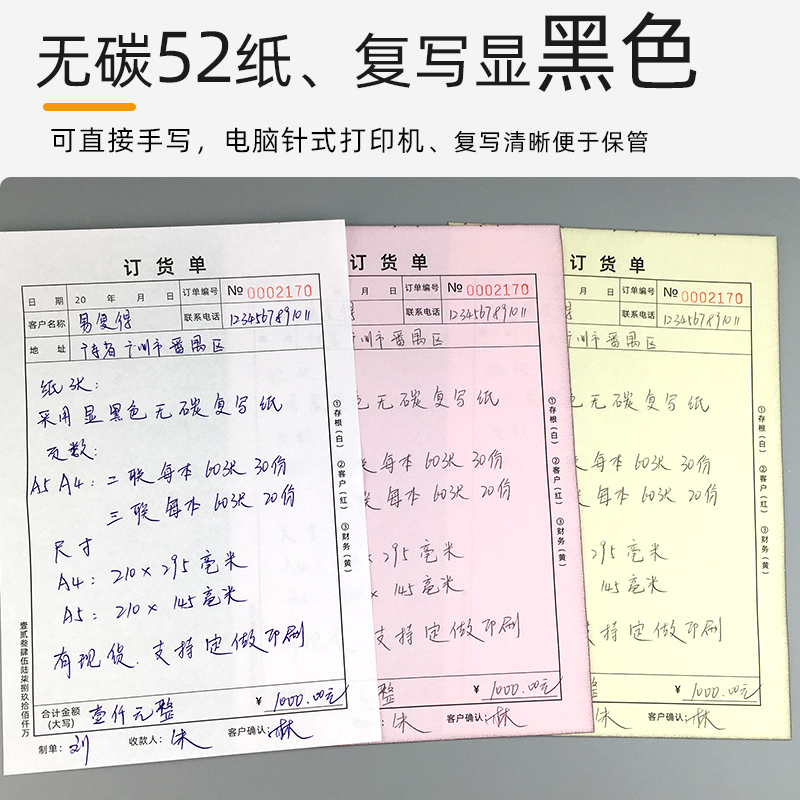 无碳52纸、复写显黑色
可直接手写，电脑针式打印机、复写清晰便于保管
订货单
日期 20 年 月 日 订单编号 № 0002170
客户名称 易复得 联系电话 1234567891011
地址 广东省广州市番禺区
纸张：
采用显黑色无碳复写纸
页数：
A5 A4：二联每本60张30份
三联每本60张20份
尺寸
A4：210×295毫米
A5：210×145毫米
有现货.支持定做印刷
合计金额(大写) 壹仟元整 ¥ 1000.00元
制单：刘 收款人：朱 客户确认：林
壹贰叁肆伍陆柒捌玖拾佰仟万
①存根（白） ②客户（红） ③财务（黄）
订货单
月 日 订单编号 № 0002170
联系电话 1234567891011
州市番禺区
色无碳复写纸
每本60张30份
联每本60张20份
295毫米
145毫米
支持定做印刷
整 ¥ 1000.00元
朱 客户确认：林
①存根（白） ②客户（红） ③财务（黄）
货单
日 订单编号 № 0002170
联系电话 1234567891011
州市番禺区
无碳复写纸
每本60张30份
每本60张20份
295毫米
145毫米
支持定做印刷
整 ¥ 1000.00元
朱 客户确认：林
①存根（白） ②客户（红） ③财务（黄）